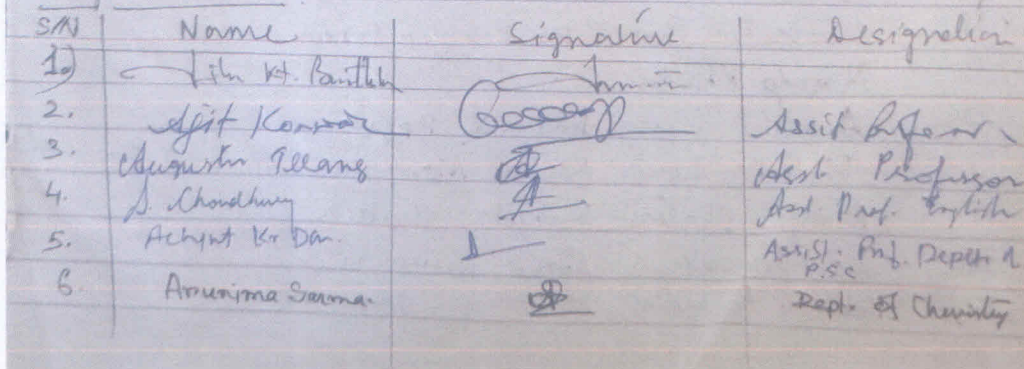 S/N Name Signature Designation
1.) Kt.
2. Ajit Konwar Assit Professor
3. Augustin Tellang Asst. Professor
4. S. Choudhury Asst. Prof. English
5. Achyut Kr Das. Assist. Prof. Deptt. of
P.Sc
6. Arunima Sarma. Dept. of Chemistry